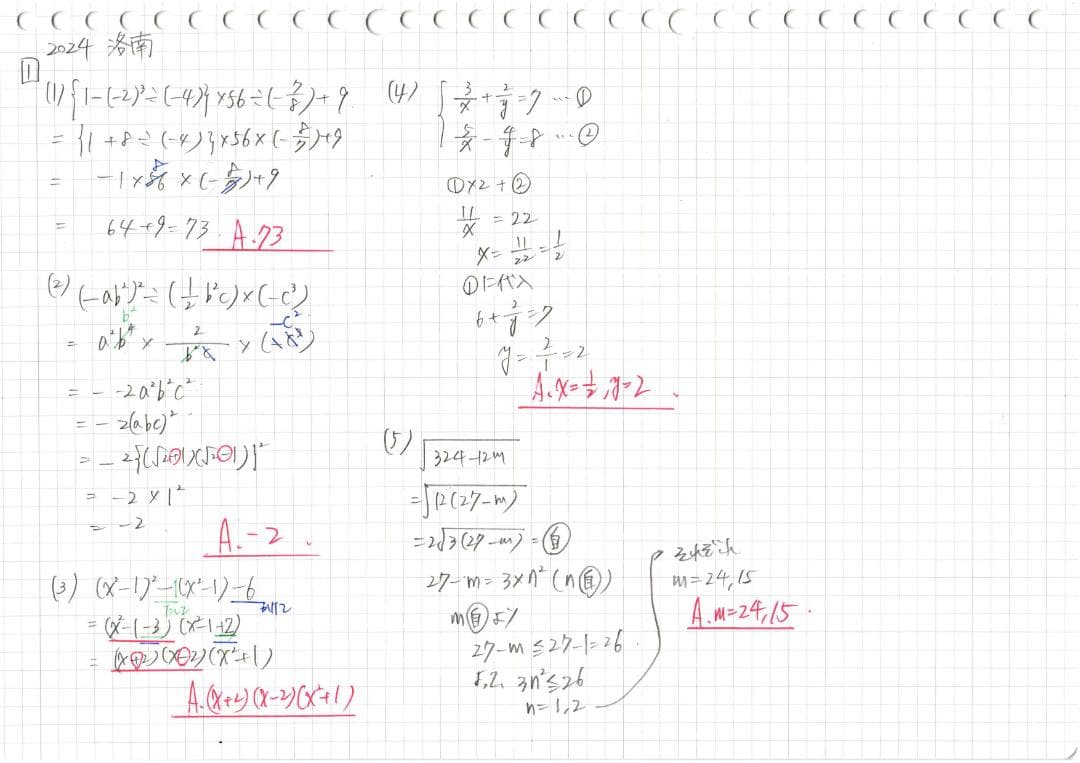 2024 洛南
1
(1) {1-(-2)³÷(-4)}×56÷(-7/8)+9
= {1+8÷(-4)}×56×(-8/7)+9
= -1×56×(-8/7)+9
8
= 64+9=73 A.73
(2) (-ab²)²÷(1/2 b²c)×(-c³)
b² -c²
= a²b⁴ × 2/b²c × (-c³)
= - -2a²b²c²
= -2(abc)²
= -2{(√2+1)(√2-1)}²
= -2×1²
= -2
A.-2.
(3) (x²-1)²-1(x²-1)-6
たして かけて
= (x²-1-3)(x²-1+2)
= (x+2)(x-2)(x²+1)
A.(x+2)(x-2)(x²+1)
(4) { 3/x + 2/y = 7 …①
5/x - 4/y = 8 …②
①×2+②
11/x = 22
x = 11/22 = 1/2
①に代入
6+2/y=7
y=2/1=2
A.x=1/2, y=2.
(5) √324-12m
= √12(27-m)
= 2√3(27-m) = 自
27-m=3×n² (n自)
m自より
27-m≦27-1=26
よって、3n²≦26
n=1,2
それぞれ
m=24,15
A.m=24,15.